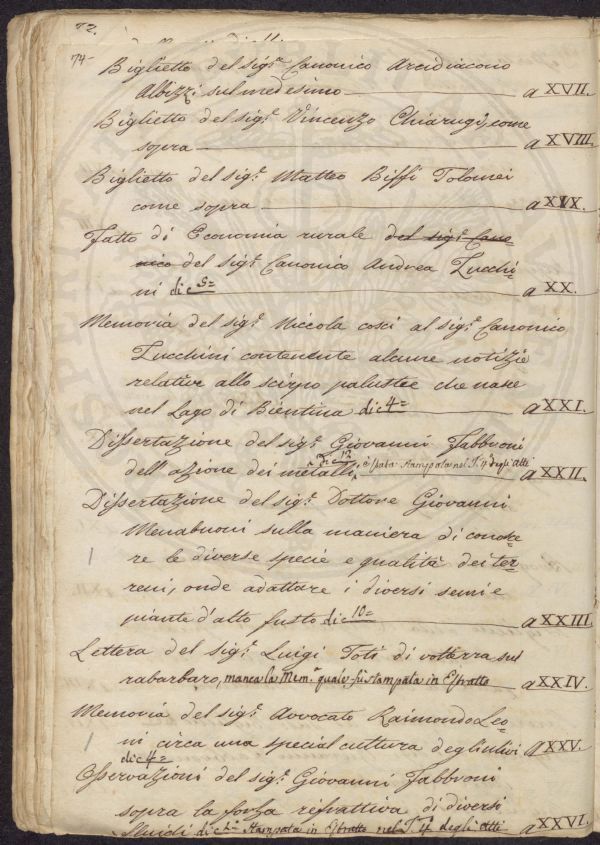 72.
74
Biglietto del sig.r Canonico Arcidiacono
Albizzi sul medesimo a XVII.
Biglietto del sig.r Vincenzo Chiarugi, come
sopra a XVIII.
Biglietto del sig.r Matteo Biffi Tolomei
come sopra a XIX.
Fatto di Economia rurale del sig.r Cano-
nico del sig.r Canonico Andrea Zucchi-
ni di c. 5= a XX.
Memoria del sig.r Niccola Cosci al sig.r Canonico
Zucchini contenente alcune notizie
relative allo scirpo palustre che nasce
nel Lago di Bientina di c 4= a XXI.
Dissertazione del sig.r Giovanni Fabbroni
di c 12
dell'azione dei metalli, è stata stampata nel T. 4 degli Atti a XXII.
Dissertazione del sig.r Dottore Giovanni
Menabuoni sulla maniera di conosce-
re le diverse specie e qualità dei ter-
reni, onde adattare i diversi semi e
piante d'alto fusto di c 10= a XXIII.
Lettera del sig.r Luigi Toti di Volterra sul
rabarbaro, manca la Mem.a quale fù stampata in Estratto a XXIV.
Memoria del sig.r Avvocato Raimondo Leo-
ni circa una special cultura degli ulivi a XXV.
di c 4=
Osservazioni del sig.r Giovanni Fabbroni
sopra la forza refrattiva di diversi
fluidi di c. Stampata in Estratto nel T. 4 degli Atti a XXVI.